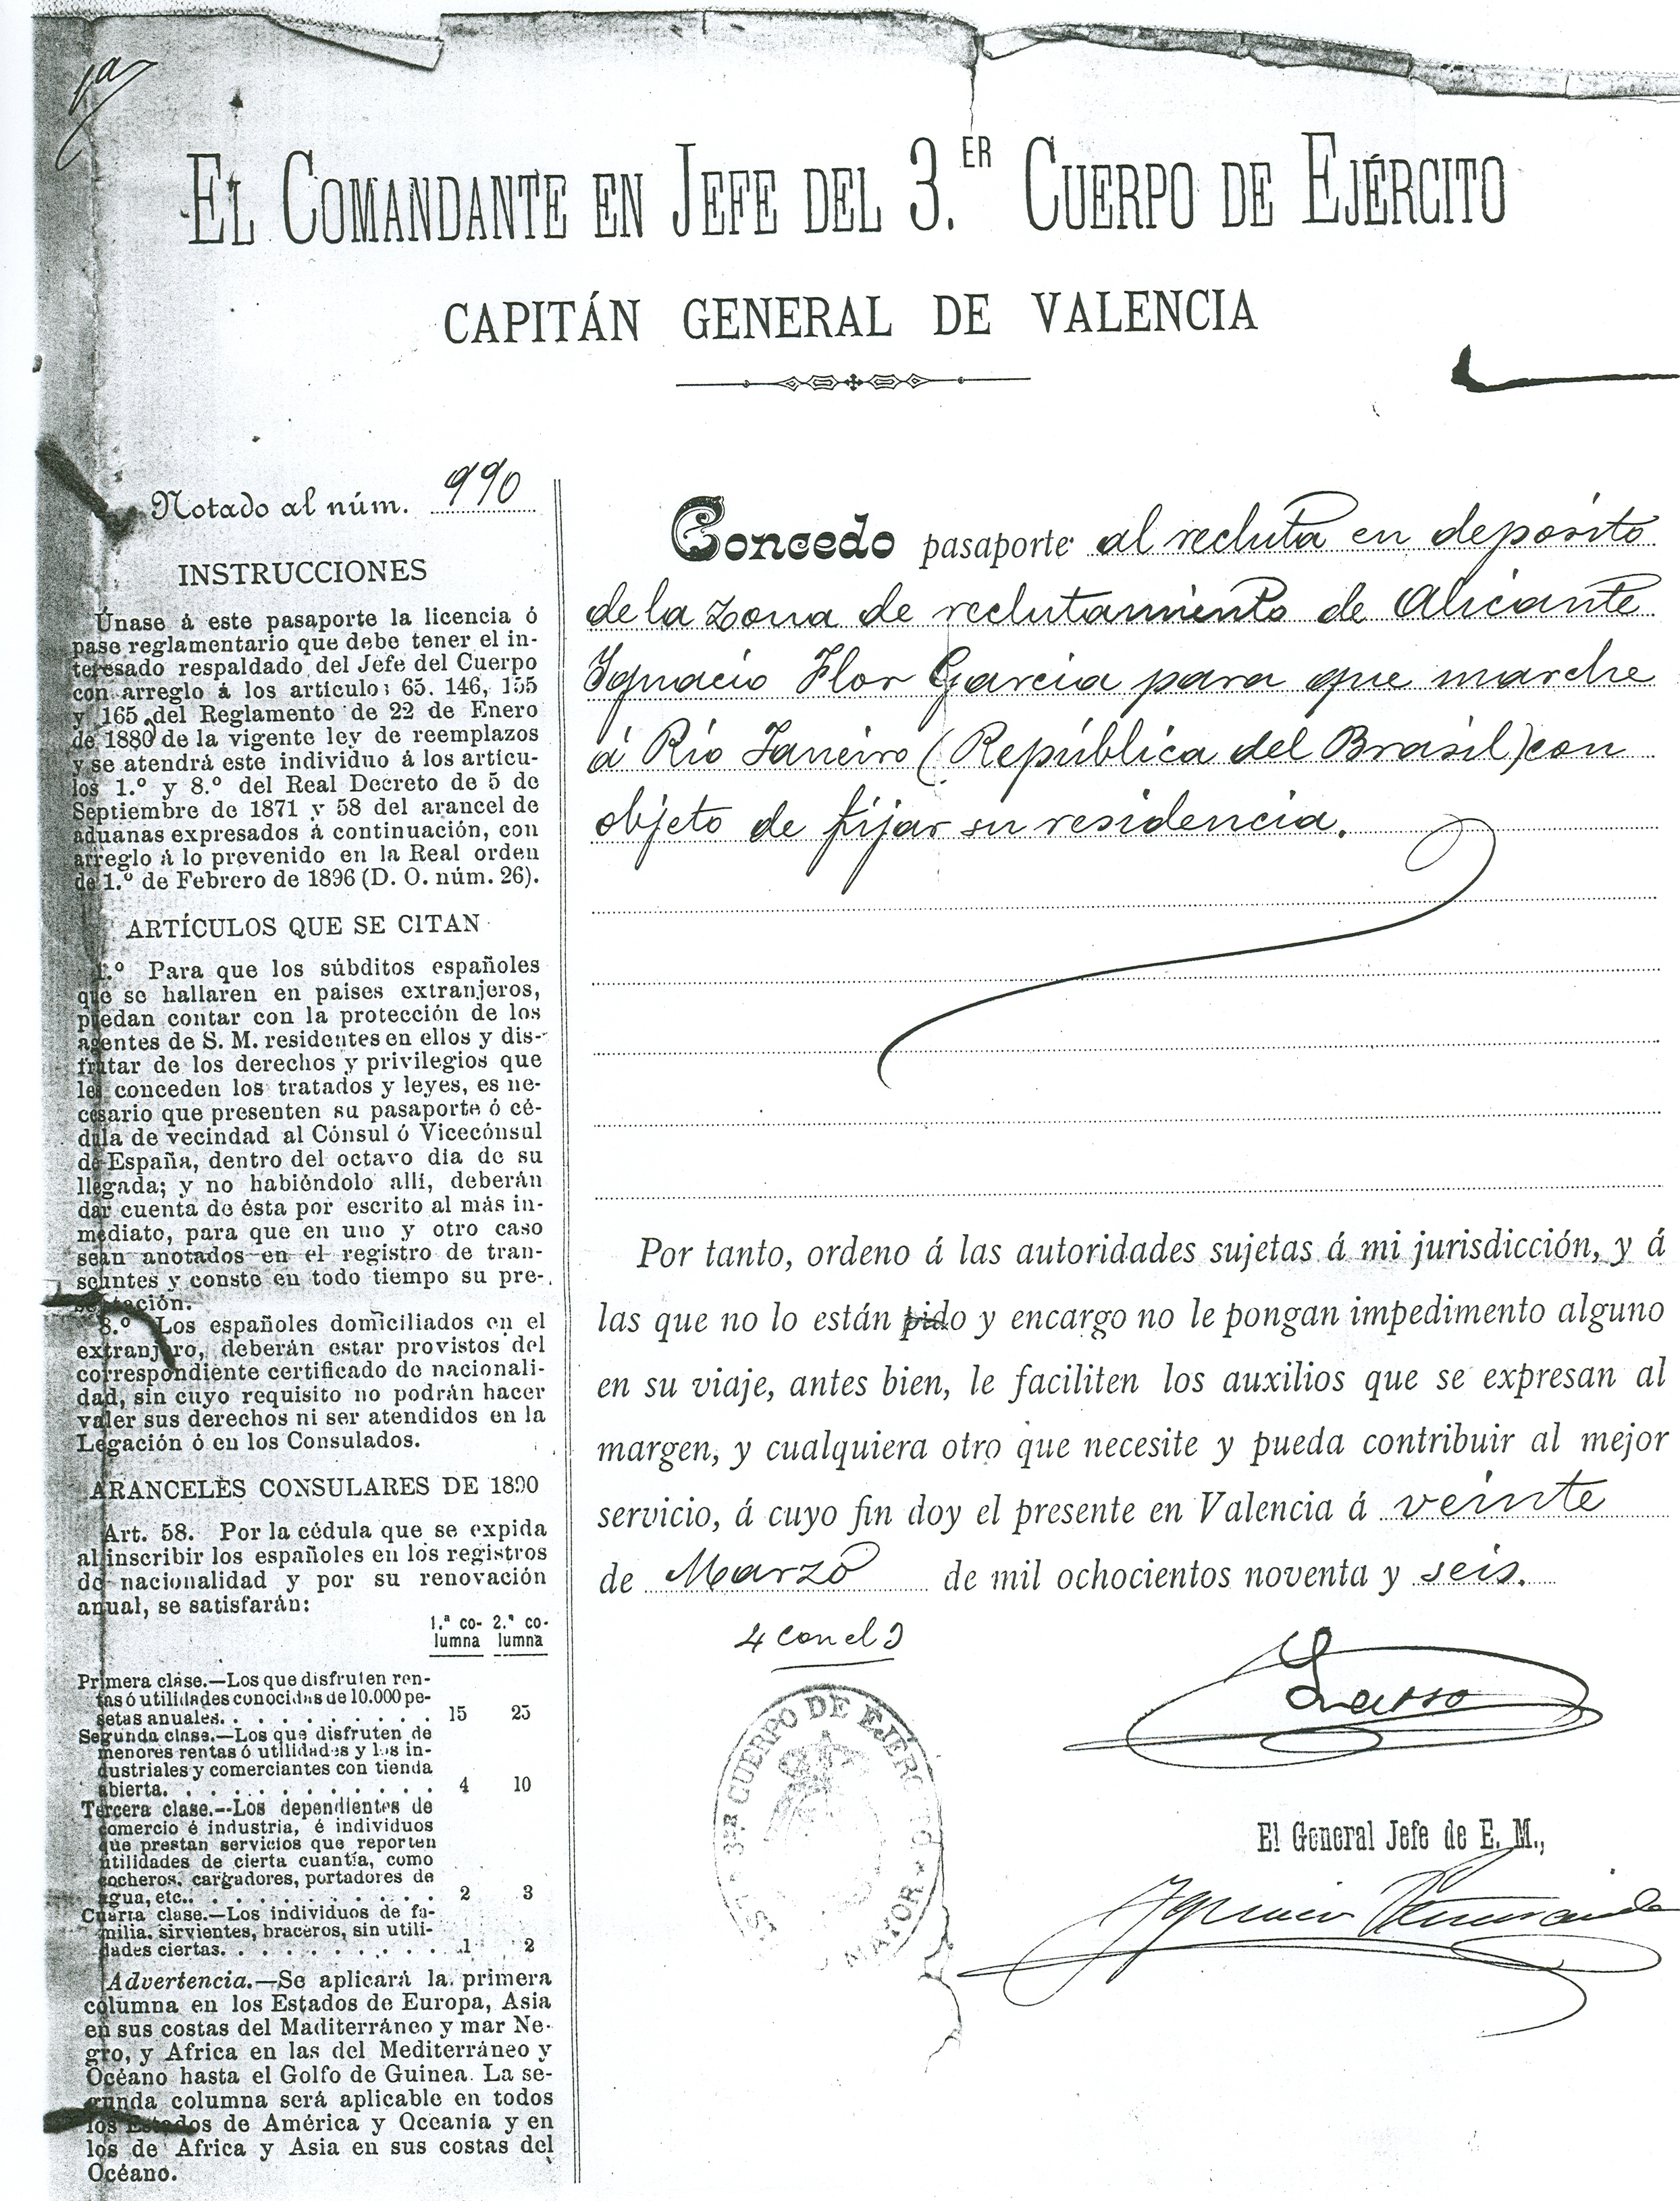 1a
EL COMANDANTE EN JEFE DEL 3.ER CUERPO DE EJÉRCITO
CAPITÁN GENERAL DE VALENCIA
Notado al núm. 990
INSTRUCCIONES
Únase á este pasaporte la licencia ó
pase reglamentario que debe tener el in-
teresado respaldado del Jefe del Cuerpo
con arreglo á los articulos 65. 146, 155
y 165 del Reglamento de 22 de Enero
de 1880 de la vigente ley de reemplazos
y se atendrá este individuo á los articu-
los 1.º y 8.º del Real Decreto de 5 de
Septiembre de 1871 y 58 del arancel de
aduanas expresados á continuación, con
arreglo á lo prevenido en la Real orden
de 1.º de Febrero de 1896 (D. O. núm. 26).
ARTÍCULOS QUE SE CITAN
1.º Para que los súbditos españoles
que se hallaren en paises extranjeros,
puedan contar con la protección de los
agentes de S. M. residentes en ellos y dis-
frutar de los derechos y privilegios que
les conceden los tratados y leyes, es ne-
cesario que presenten su pasaporte ó cé-
dula de vecindad al Cónsul ó Vicecónsul
de España, dentro del octavo dia de su
llegada; y no habiéndolo allí, deberán
dar cuenta de ésta por escrito al más in-
mediato, para que en uno y otro caso
sean anotados en el registro de tran-
seuntes y conste en todo tiempo su pre-
sentación.
8.º Los españoles domiciliados en el
extranjero, deberán estar provistos del
correspondiente certificado de nacionali-
dad, sin cuyo requisito no podrán hacer
valer sus derechos ni ser atendidos en la
Legación ó en los Consulados.
ARANCELES CONSULARES DE 1890
Art. 58. Por la cédula que se expida
al inscribir los españoles en los registros
de nacionalidad y por su renovación
anual, se satisfarán:
1.ª co- 2.ª co-
lumna lumna
Primera clase.—Los que disfruten ren-
tas ó utilidades conocidas de 10.000 pe-
setas anuales. . . . . . . . . . 15 25
Segunda clase.—Los que disfruten de
menores rentas ó utilidades y los in-
dustriales y comerciantes con tienda
abierta. . . . . . . . . . . . 4 10
Tercera clase.--Los dependientes de
comercio é industria, é individuos
que prestan servicios que reporten
utilidades de cierta cuantía, como
cocheros, cargadores, portadores de
agua, etc.. . . . . . . . . . . 2 3
Cuarta clase.—Los individuos de fa-
milia, sirvientes, braceros, sin utili-
dades ciertas. . . . . . . . . . 1 2
Advertencia.—Se aplicará la primera
columna en los Estados de Europa, Asia
en sus costas del Maditerráneo y mar Ne-
gro, y Africa en las del Mediterráneo y
Océano hasta el Golfo de Guinea. La se-
gunda columna será aplicable en todos
los Estados de América y Oceanía y en
los de Africa y Asia en sus costas del
Océano.
Concedo pasaporte al recluta en deposito
de la zona de reclutamiento de Alicante
Ignacio Flor Garcia para que marche
á Rio Janeiro (República del Brasil) con
objeto de fijar su residencia.
Por tanto, ordeno á las autoridades sujetas á mi jurisdicción, y á
las que no lo están pido y encargo no le pongan impedimento alguno
en su viaje, antes bien, le faciliten los auxilios que se expresan al
margen, y cualquiera otro que necesite y pueda contribuir al mejor
servicio, á cuyo fin doy el presente en Valencia á veinte
de Marzo de mil ochocientos noventa y seis.
3ER CUERPO DE EJÉRCITO
MAYOR
El General Jefe de E. M.,
Ignacio